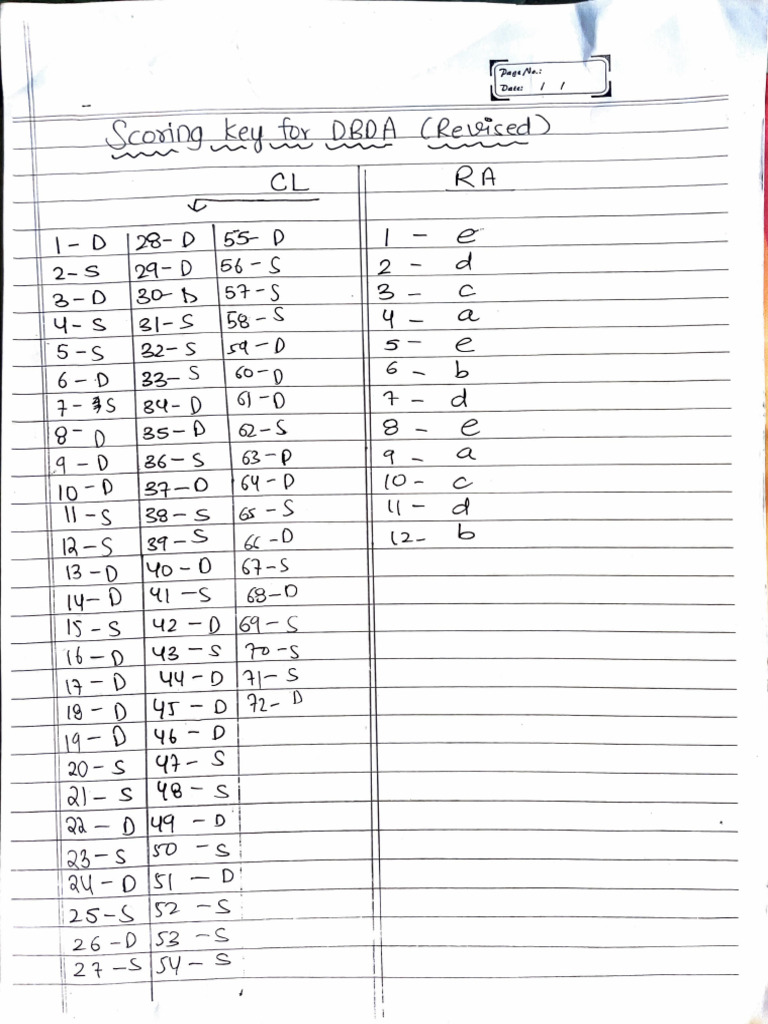 Page No.:
Date: / /
Scoring key for DBDA (Revised)
CL RA
1 - D 28 - D 55 - D 1 - e
2 - S 29 - D 56 - S 2 - d
3 - D 30 - D 57 - S 3 - c
4 - S 31 - S 58 - S 4 - a
5 - S 32 - S 59 - D 5 - e
6 - D 33 - S 60 - D 6 - b
7 - S 34 - D 61 - D 7 - d
8 - D 35 - D 62 - S 8 - e
9 - D 36 - S 63 - D 9 - a
10 - D 37 - D 64 - D 10 - c
11 - S 38 - S 65 - S 11 - d
12 - S 39 - S 66 - D 12 - b
13 - D 40 - D 67 - S
14 - D 41 - S 68 - D
15 - S 42 - D 69 - S
16 - D 43 - S 70 - S
17 - D 44 - D 71 - S
18 - D 45 - D 72 - D
19 - D 46 - D
20 - S 47 - S
21 - S 48 - S
22 - D 49 - D
23 - S 50 - S
24 - D 51 - D
25 - S 52 - S
26 - D 53 - S
27 - S 54 - S